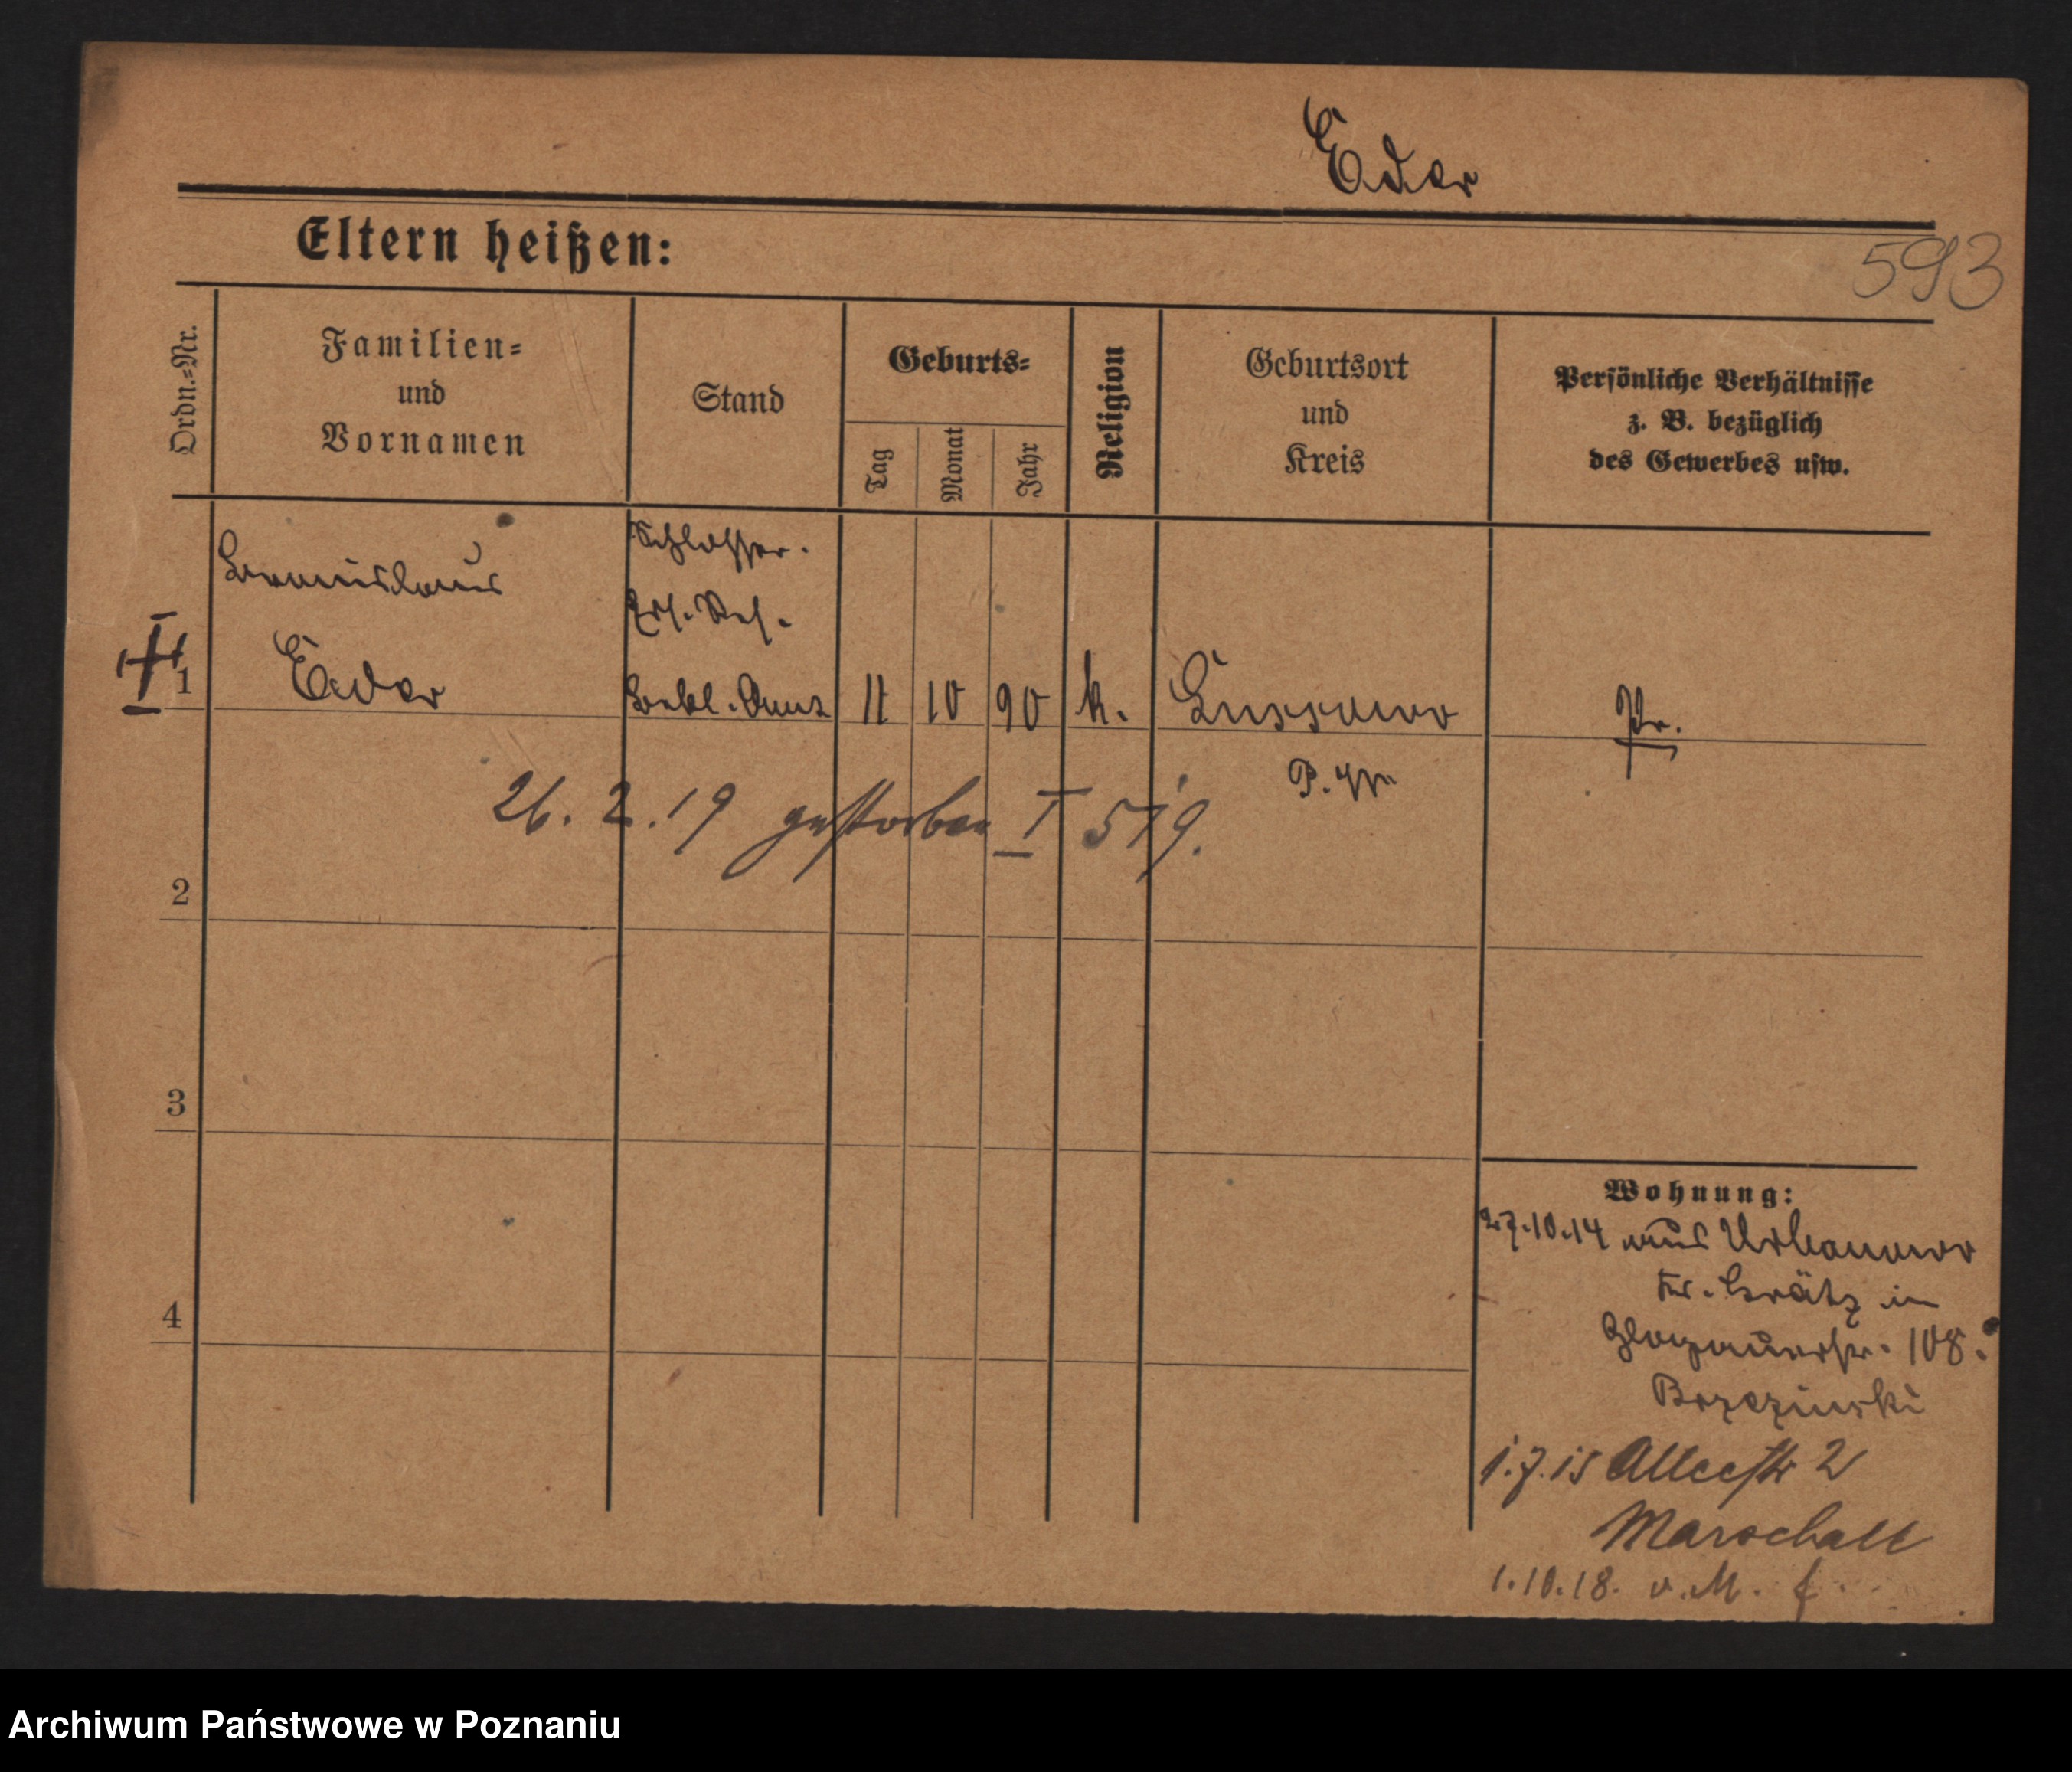 Eder
Eltern heißen:
593
Ordn.-Nr.
Familien-
und
Vornamen
Stand
Geburts-
Tag
Monat
Jahr
Religion
Geburtsort
und
Kreis
Persönliche Verhältnisse
z. B. bezüglich
des Gewerbes usw.
Schlosser.
Bronislaus
Ers. Res.
1
Eder
11 10 90 k. Lussowo
Pr.
P. W.
26. 2. 19 gestorben I 519.
2
3
Wohnung:
27.10.14 aus Urbanowo
Kr. Grätz in
4
Glogauerstr. 108.
Brzezinski
1.7.15 Alleestr 2
Marschall
1.10.18. v. M.
Archiwum Państwowe w Poznaniu